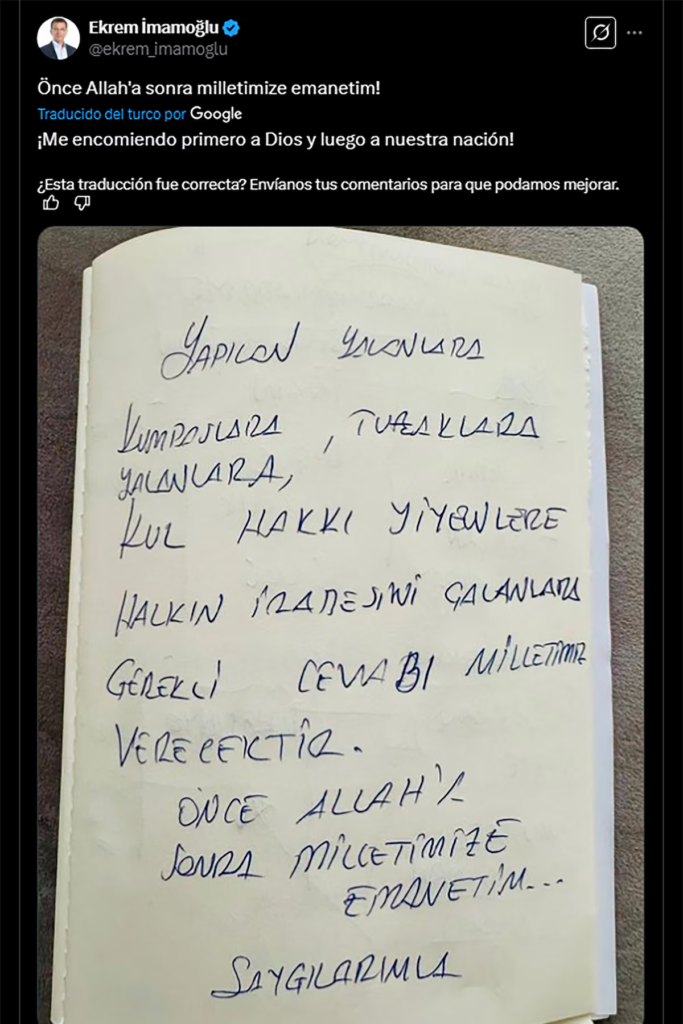 Ekrem İmamoğlu
@ekrem_imamoglu
Önce Allah'a sonra milletimize emanetim!
Traducido del turco por Google
¡Me encomiendo primero a Dios y luego a nuestra nación!
¿Esta traducción fue correcta? Envíanos tus comentarios para que podamos mejorar.
YAPILAN YALANLARA
KUMPASLARA , TUZAKLARA
YALANLARA,
KUL HAKKI YİYENLERE
HALKIN İRADESİNİ ÇALANLARA
GEREKLİ CEVABI MİLLETİMİZ
VERECEKTİR.
ÖNCE ALLAH'A
SONRA MİLLETİMİZE
EMANETİM...
SAYGILARIMLA